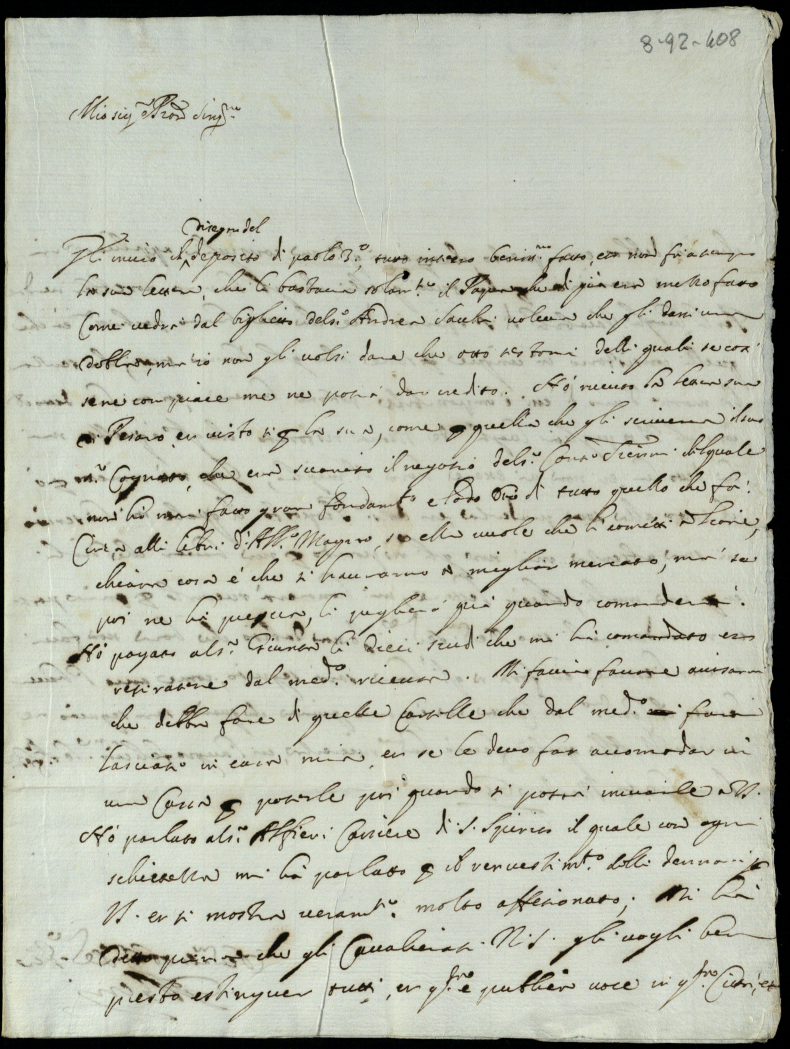 8-92-408
Mio sig.re
disegno del
Gli invio il deposito di paolo 3.o, tutto intiero beniss.mo fatto, et non fù a tempo
la sua lettera, che le bastava solam.te il Papa che di già era mezzo fatto
Come vedrà dal biglietto del s.r Andrea Sacchi voleva che gli dessi una
dobla, mà io non gli volsi dare che otto testoni delli quali se così
se ne compiace me ne potrà dar credito. Hò ricevuto la lettera sua
di Pesaro, et visto sì p la sua, come p quella che gli scriveva il suo
s.r Cognato, che era svanito il negotio del s.r Conte del quale
non hò mai fatto gran fondam.to e lodo Dio di tutto quello che fà.
Circa alli libri d'Alb.o Magno, se ella vuole che li cometti a Lione,
chiara cosa è che si havranno a miglior mercato, mà se
poi ne hà prescia, li pagherò quì quando comanderà.
Hò pagato al s.r li dieci scudi che mi hà comandato et
ritiratone dal med.o ricevuta. Mi faccia favore avisarmi
che debba fare di quelle Cartelle che dal med.o mi furon
lasciate in casa mia, et se le devo far accomodar in
una Cassa p poterle poi quando si potrà inviarle a V.S.
Hò parlato al s.r Alfieri Cassiere di S. Spirito il quale con ogni
schiettezza mi hà parlato p il rinvestim.to delli dennari di
V.S. et si mostra veram.te molto affetionato; Mi hà
detto che gli Cavalierati N.S. gli vogli ben
presto estinguer tutti, et q.sta è publica voce in q.sta Città, et